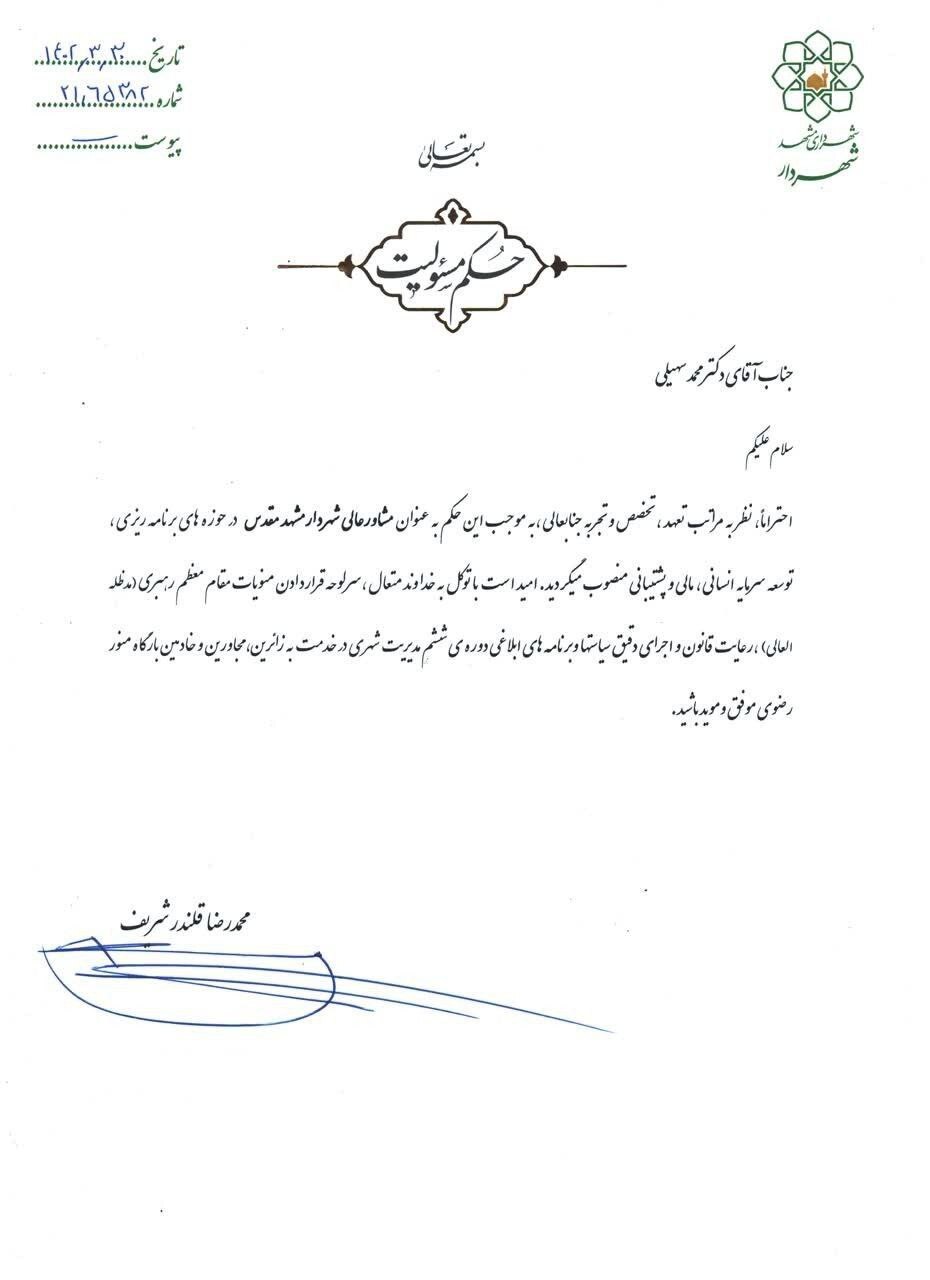 تاریخ ۱۴۰۲,۳,۳۰
شماره ۲۱,۶۵۳۸۲
پیوست
شهرداری مشهد
شهردار
بسمه تعالی
حکم مسئولیت
جناب آقای دکتر محمد سهیلی
سلام علیکم
احتراماً، نظر به مراتب تعهد ، تخصص و تجربه جنابعالی ،به موجب این حکم به عنوان مشاور عالی شهردار مشهد مقدس در حوزه های برنامه ریزی ،
توسعه سرمایه انسانی ، مالی و پشتیبانی منصوب میگردید. امید است با توکل به خداوند متعال ، سرلوحه قرار دادن منویات مقام معظم رهبری (مدظله
العالی) ،رعایت قانون و اجرای دقیق سیاستها وبرنامه های ابلاغی دوره ی ششم مدیریت شهری در خدمت به زائرین،مجاورین و خادمین بارگاه منور
رضوی موفق و موید باشید.
محمدرضا قلندر شریف